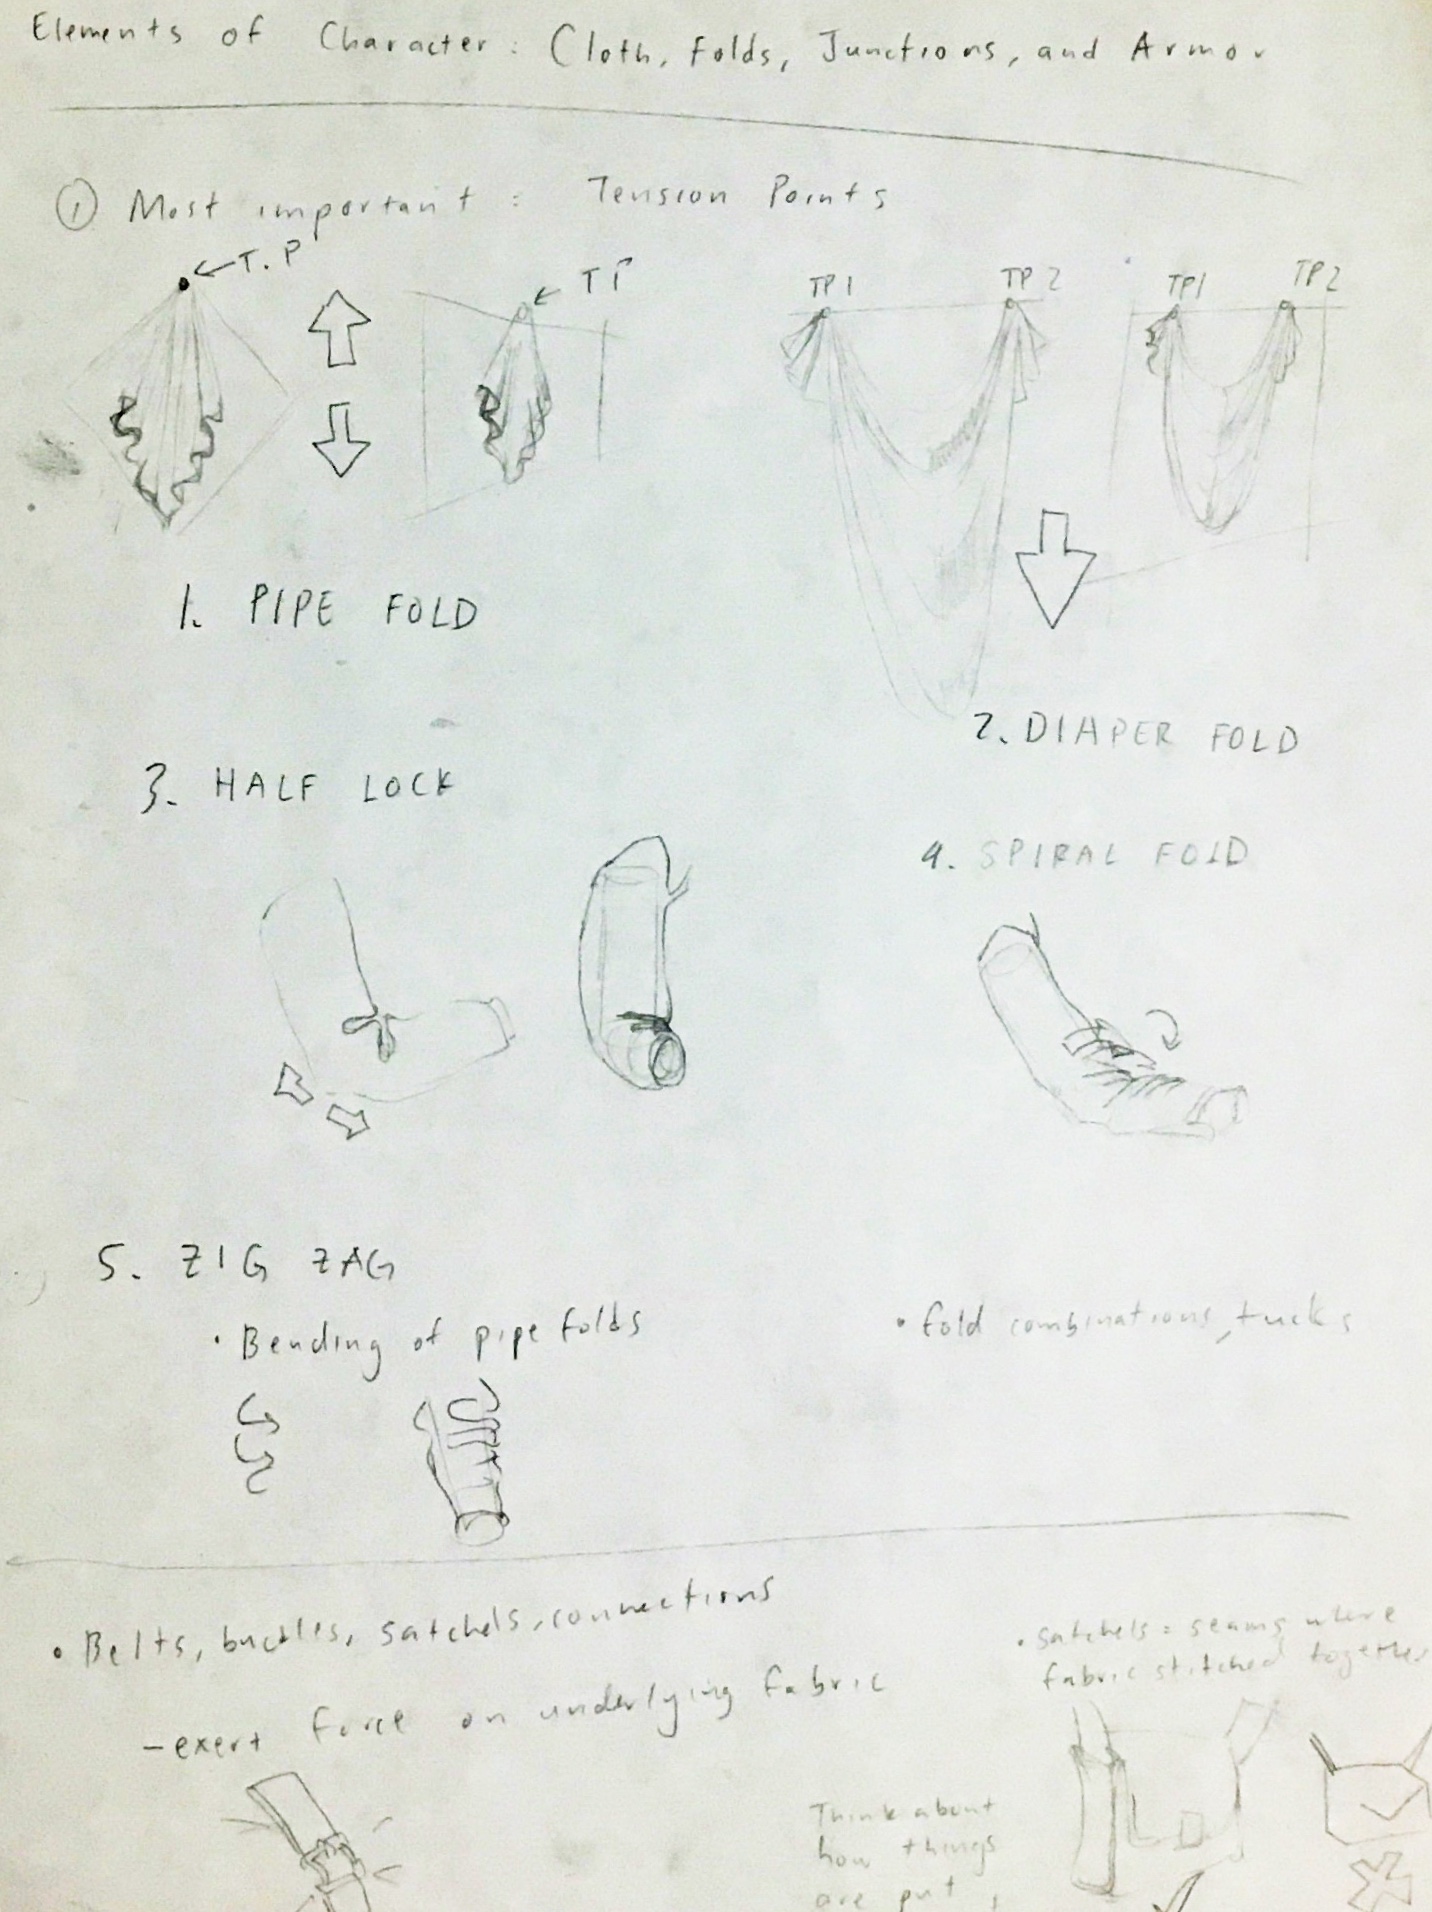 Elements of Character: Cloth, Folds, Junctions, and Armor
① Most important: Tension Points
T.P
TP
TP1
TP2
TP1
TP2
1. PIPE FOLD
2. DIAPER FOLD
3. HALF LOCK
4. SPIRAL FOLD
5. ZIG ZAG
• Bending of pipe folds
• fold combinations, tucks
• Belts, buckles, satchels, connections
- exert force on underlying fabric
• satchels = seams where
fabric stitched together
Think about
how things
are put